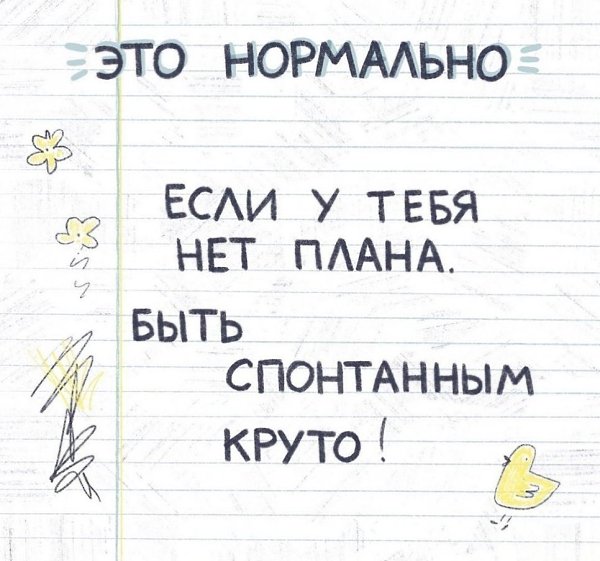 ЭТО НОРМАЛЬНО
ЕСЛИ У ТЕБЯ
НЕТ ПЛАНА.
БЫТЬ
СПОНТАННЫМ
КРУТО!